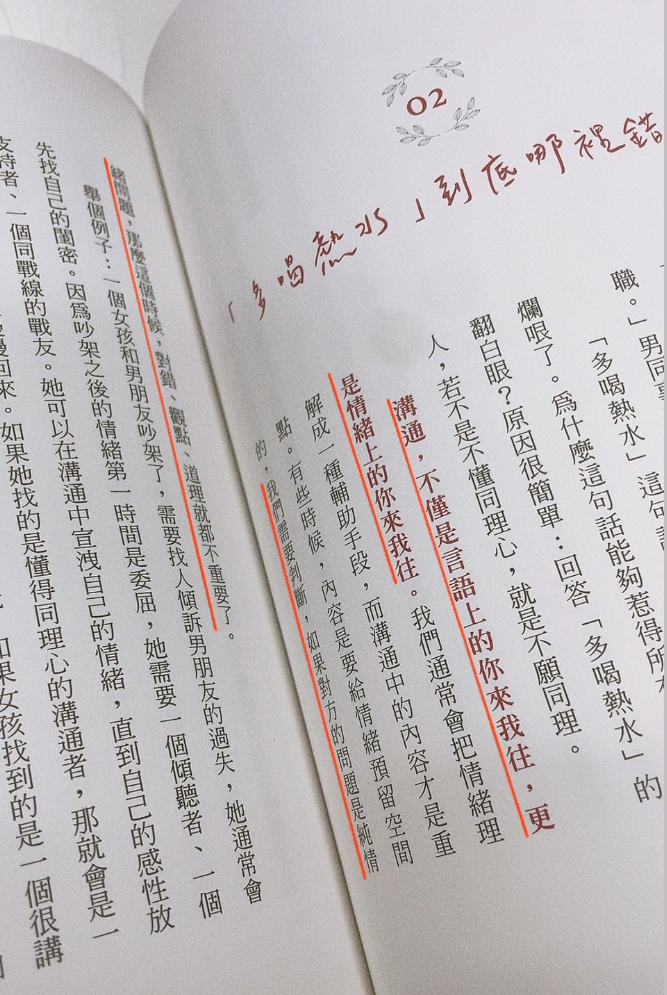 02
「多喝熱水」到底哪裡錯
職。」男同
「多喝熱水」這句
爛哏了。為什麼這句話能夠惹得所
翻白眼？原因很簡單：回答「多喝熱水」的
人，若不是不懂同理心，就是不願同理。
溝通，不僅是言語上的你來我往，更
是情緒上的你來我往。我們通常會把情緒理
解成一種輔助手段，而溝通中的內容才是重
點。有些時候，內容是要給情緒預留空間
的，我們需要判斷，如果對方的問題是純情
緒問題，那麼這個時候，對錯、觀點、道理就都不重要了。
舉個例子：一個女孩和男朋友吵架了，需要找人傾訴男朋友的過失，她通常會
先找自己的閨密。因為吵架之後的情緒第一時間是委屈，她需要一個傾聽者、一個
支持者、一個同戰線的戰友。她可以在溝通中宣洩自己的情緒，直到自己的感性放
回來。如果她找的是懂得同理心的溝通者，那就會是一
如果女孩找到的是一個很講